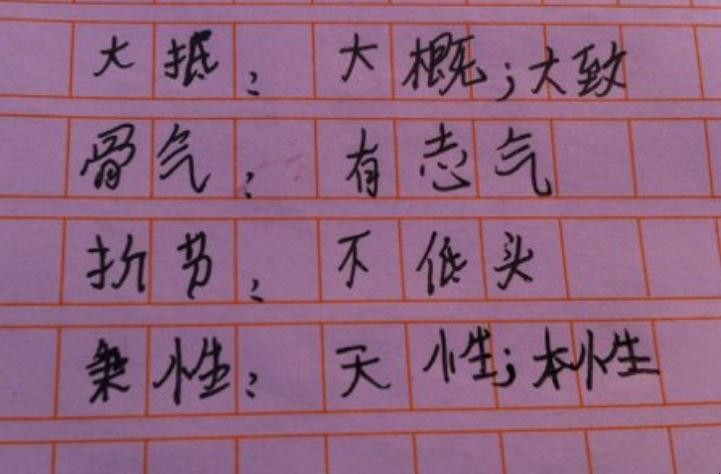 大抵：大概；大致
骨气：有志气
折节：不低头
秉性：天性；本性